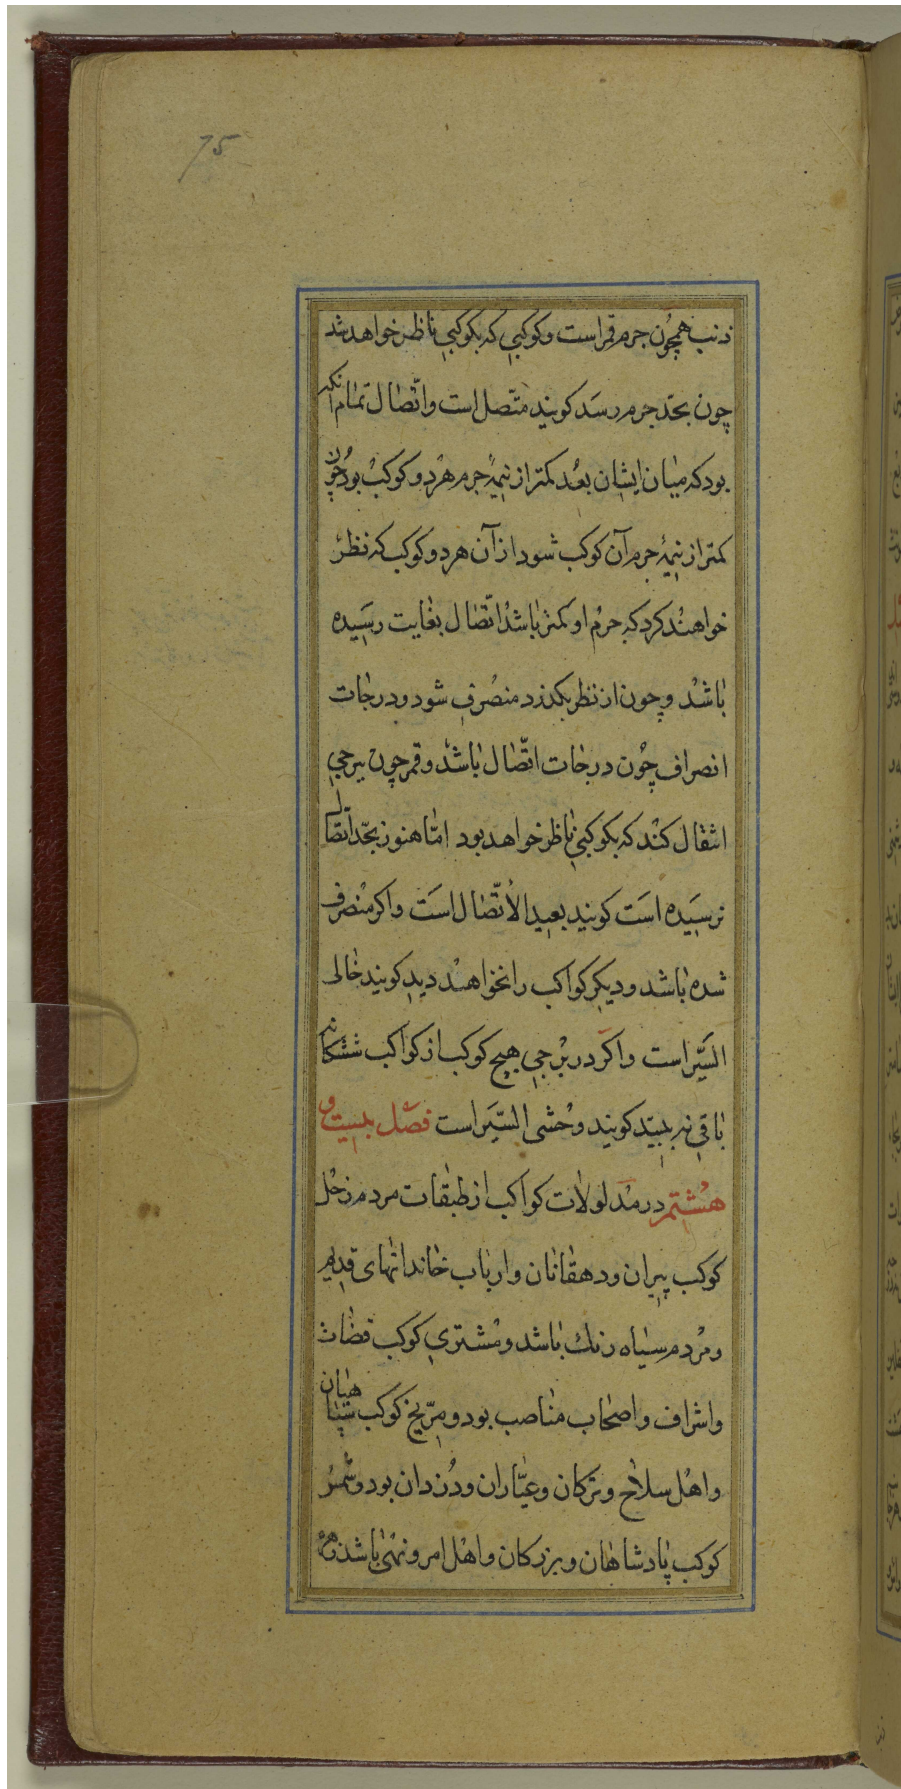 75
ذنب همچون جرم قمر است و کوکبی که بکوکبی ناظر خواهد شد
چون بحدّ جرم رسد کویند متّصل است و اتّصال تمام انکه
بود که میان ایشان بعد کمتر از نیمهٔ جرم هر دو کوکب بود چون
کمتر از نیمهٔ جرم آن کوکب شود از آن هر دو کوکب که نظر
خواهند کرد که جرم او کمتر باشد اتّصال بغایت رسیده
باشد و چون از نظر بکذرد منصرف شود و درجات
انصراف چون درجات اتّصال باشد و قمر چون ببرجی
انتقال کند که بکوکبی ناظر خواهد بود امّا هنوز بحدّ اتّصال
نرسیده است کویند بعید الاتّصال است و اکر منصرف
شده باشد و دیکر کواکب را نخواهند دید کویند خالی
السّیر است و اکر در برجی هیچ کوکب از کواکب ششکانه
باقی نه بیند کویند وحشی السّیر است فصل بیست و
هشتم در مدلولات کواکب از طبقات مردم زحل
کوکب پیران و دهقانان و ارباب خاندانهای قدیم
و مردم سیاه رنک باشد و مشتری کوکب قضات
و اشراف و اصحاب مناصب بود و مرّیخ کوکب سپاهیان
و اهل سلاح و ترکان و عیّاران و دزدان بود و شمس
کوکب پادشاهان و بزرکان و اهل امر و نهی باشد زهره